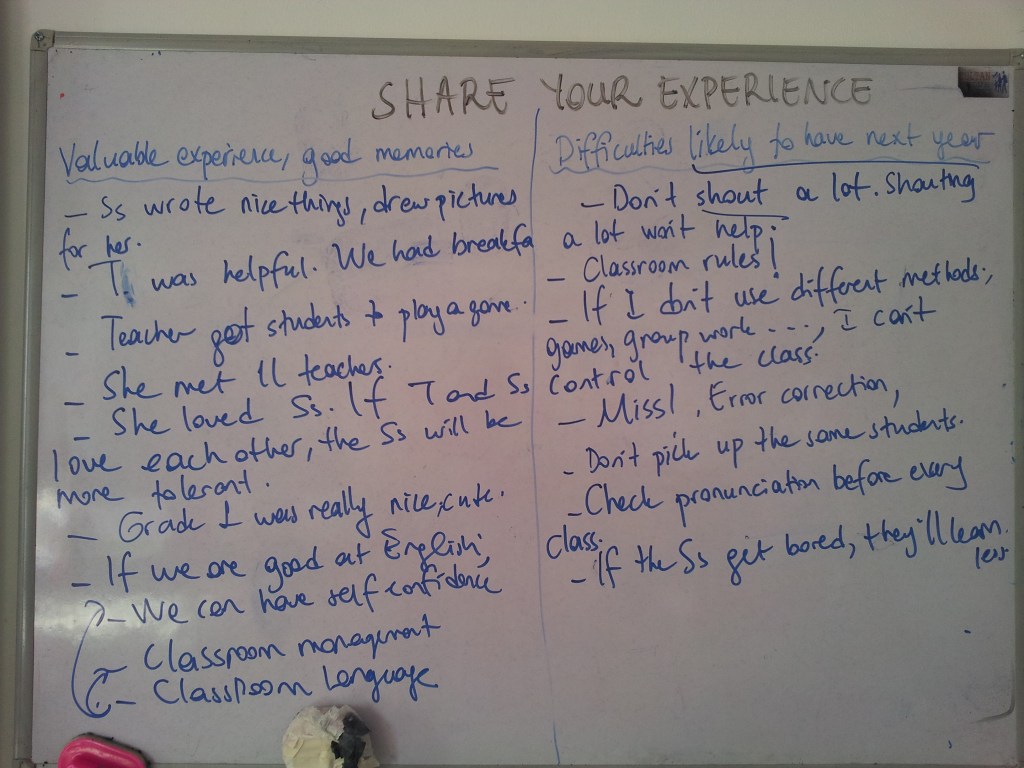 SHARE YOUR EXPERIENCE
Valuable experience, good memories
– Ss wrote nice things, drew pictures
for her.
– T. was helpful. We had breakfa
– Teacher got students to play a game.
– She met 11 teachers.
– She loved Ss. If T and Ss
love each other, the Ss will be
more tolerant.
– Grade 1 was really nice, cute.
– If we are good at English,
– We can have self confidence
– Classroom management
– Classroom language
Difficulties likely to have next year
– Don't shout a lot. Shouting
a lot won't help.
– Classroom rules!
– If I don't use different methods,
games, group work ...., I can't
control the class.
– Miss!, Error correction,
– Don't pick up the same students.
– Check pronunciation before every
class.
– If the Ss get bored, they'll learn
less